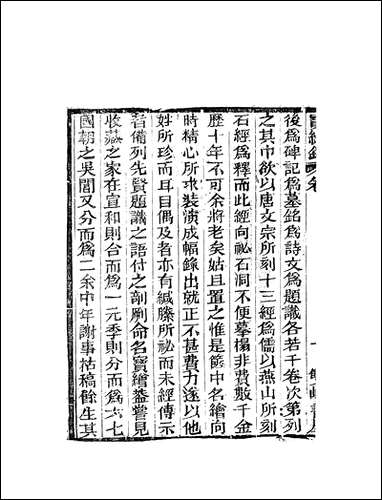 後爲碑記爲墓銘爲詩文爲題識各若干卷次第列
之其中欲以唐文宗所刻十三經爲儒以燕山所刻
石經爲釋而此經向祕石洞不便摹搨非費數千金
歷十年不可余將老矣姑且置之惟是篋中名繪向
時精心所求裝演成幅錄出就正不甚費力遂以他
姓所珍而耳目偶及者亦有緘縢所祕而未經傳示
者備列先賢題識之語付之剞劂命名寶繪葢嘗見
收藏之家在宣和則合而爲一元季則分而爲六七
國朝之吳閶又分而爲二余中年謝事枯稿餘生其